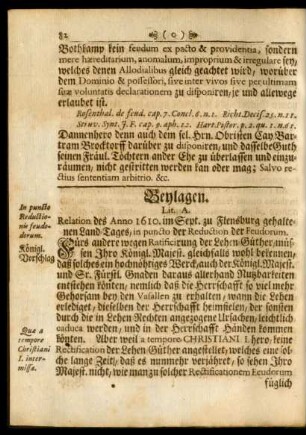 82 ( o )
Bothkamp kein feudum ex pacto & providentia, sondern
mere hæreditarium, anomalum, improprium & irregulare sey,
welches denen Allodialibus gleich geachtet wird, worüber
dem Dominio & possessori, sive inter vivos sive per ultimam
suæ voluntatis declarationem zu disponiren, je und allewege
erlaubet ist.
Rosenthal. de feud. cap. 7. Concl. 8. n. 1. Richt. Decis. 25. n. 11.
Struv. Synt. J. F. cap. 9. aph. 12. Hart. Pistor. p. 2. qu. 1. n. 61.
Dannenhero denn auch dem sel. Hrn. Obristen Cay Bar-
tram Brocktorff darüber zu disponiren, und dasselbe Guth
seinen Fräul. Töchtern ander Ehe zu überlassen und einzu-
räumen, nicht gestritten werden kan oder mag; Salvo re-
ctius sententiam arbitrio. &c.
Beylagen.
Lit. A.
In puncto
Reductio-
nis feudo-
dorum.
Relation des Anno 1610. im Sept. zu Flensburg gehalte-
nen Land-Tages, in puncto der Reduction der Feudorum.
Königl.
Vorschlag
Fürs andere wegen Ratificirung der Lehen-Güther, müs-
sen Ihro Königl. Majest. gleichsfalls wohl bekennen,
daß solches ein hochnöthiges Werck, auch der Königl. Majest.
und Sr. Fürstl. Gnaden daraus allerhand Nutzbarkeiten
entstehen könten, nemlich daß die Herrschafft so viel mehr
Gehorsam bey den Vasallen zu erhalten, wann die Lehen
erlediget, dieselben der Herrschafft heimfielen, der sonsten
durch die in den Rechten angezogene Ursachen, leichtlich
caduca werden, und in der Herrschafft Händen kommen
Quæ a
tempore
Christiani
I. inter-
missa.
könten. Aber weil a tempore CHRISTIANI I. hero, keine
Rectification der Lehen-Güther angestellet, welches eine sol-
che lange Zeit, daß es nunmehr verjähret, so sehen Ihro
Majest. nicht, wie man zu solcher Rectificationem Feudorum
füglich